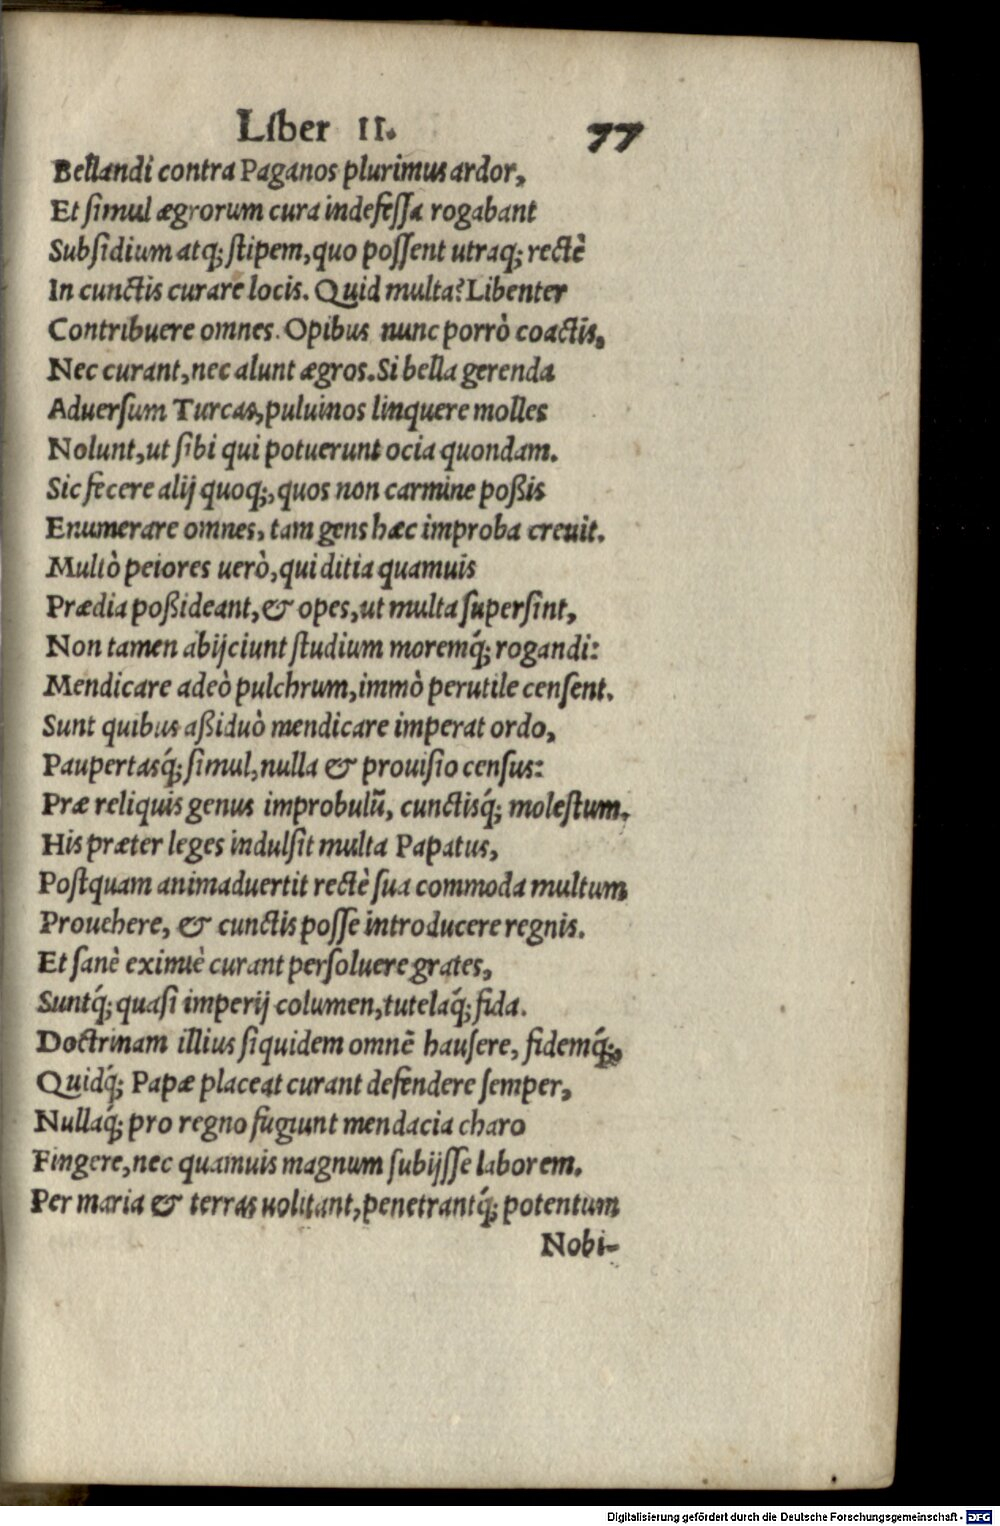 Liber II. 77
Bellandi contra Paganos plurimus ardor,
Et simul ægrorum cura indefessa rogabant
Subsidium atq; stipem, quo possent utraq; rectè
In cunctis curare locis. Quid multa? Libenter
Contribuere omnes. Opibus nunc porrò coactis,
Nec curant, nec alunt ægros. Si bella gerenda
Adversum Turcas, puluinos linquere molles
Nolunt, ut sibi qui potuerunt ocia quondam.
Sic fecere alij quoq;, quos non carmine poßis
Enumerare omnes, tam gens hæc improba creuit.
Multò peiores uerò, qui ditia quamuis
Prædia poßideant, & opes, ut multa supersint,
Non tamen abijciunt studium moremq́; rogandi:
Mendicare adeò pulchrum, immò perutile censent.
Sunt quibus aßiduò mendicare imperat ordo,
Paupertasq́; simul, nulla & prouisio census:
Præ reliquis genus improbulũ, cunctisq́; molestum.
His præter leges indulsit multa Papatus,
Postquam animaduertit rectè sua commoda multum
Prouehere, & cunctis posse introducere regnis.
Et sanè eximiè curant persoluere grates,
Suntq́; quasi imperij columen, tutelaq́; fida.
Doctrinam illius siquidem omnẽ hausere, fidemq́;,
Quidq́; Papæ placeat curant defendere semper,
Nullaq́; pro regno fugiunt mendacia charo
Fingere, nec quamuis magnum subijsse laborem.
Per maria & terras uolitant, penetrantq́; potentum
Nobi-
Digitalisierung gefördert durch die Deutsche Forschungsgemeinschaft - DFG